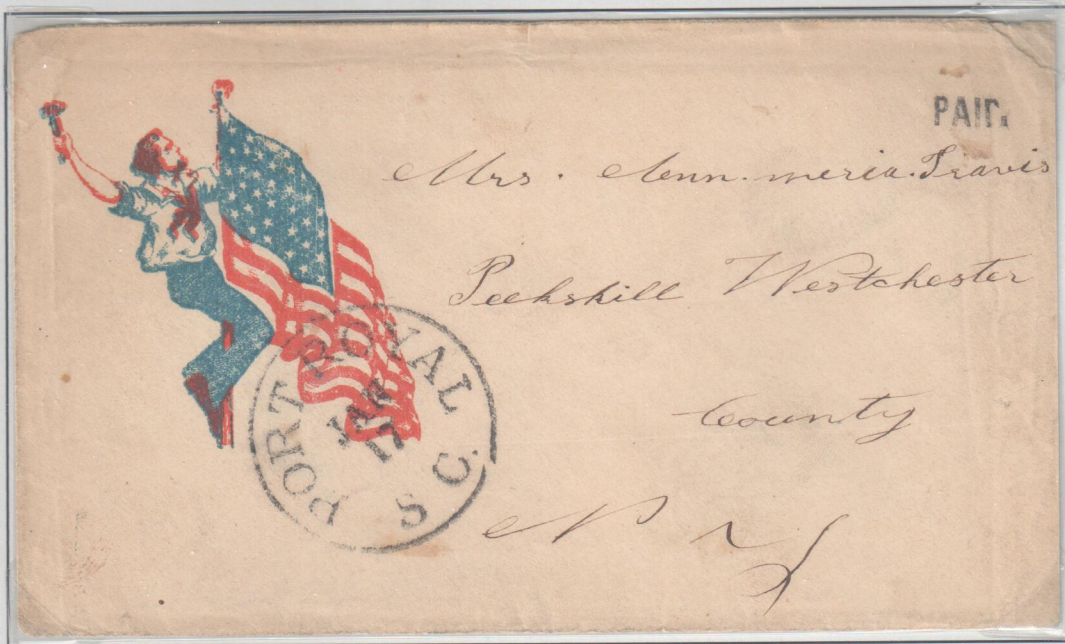 PAID.
Mrs. Ann. meria. Travis
Peekskill Westchester
County
N Y
PORT ROYAL
S C.
JAN
17